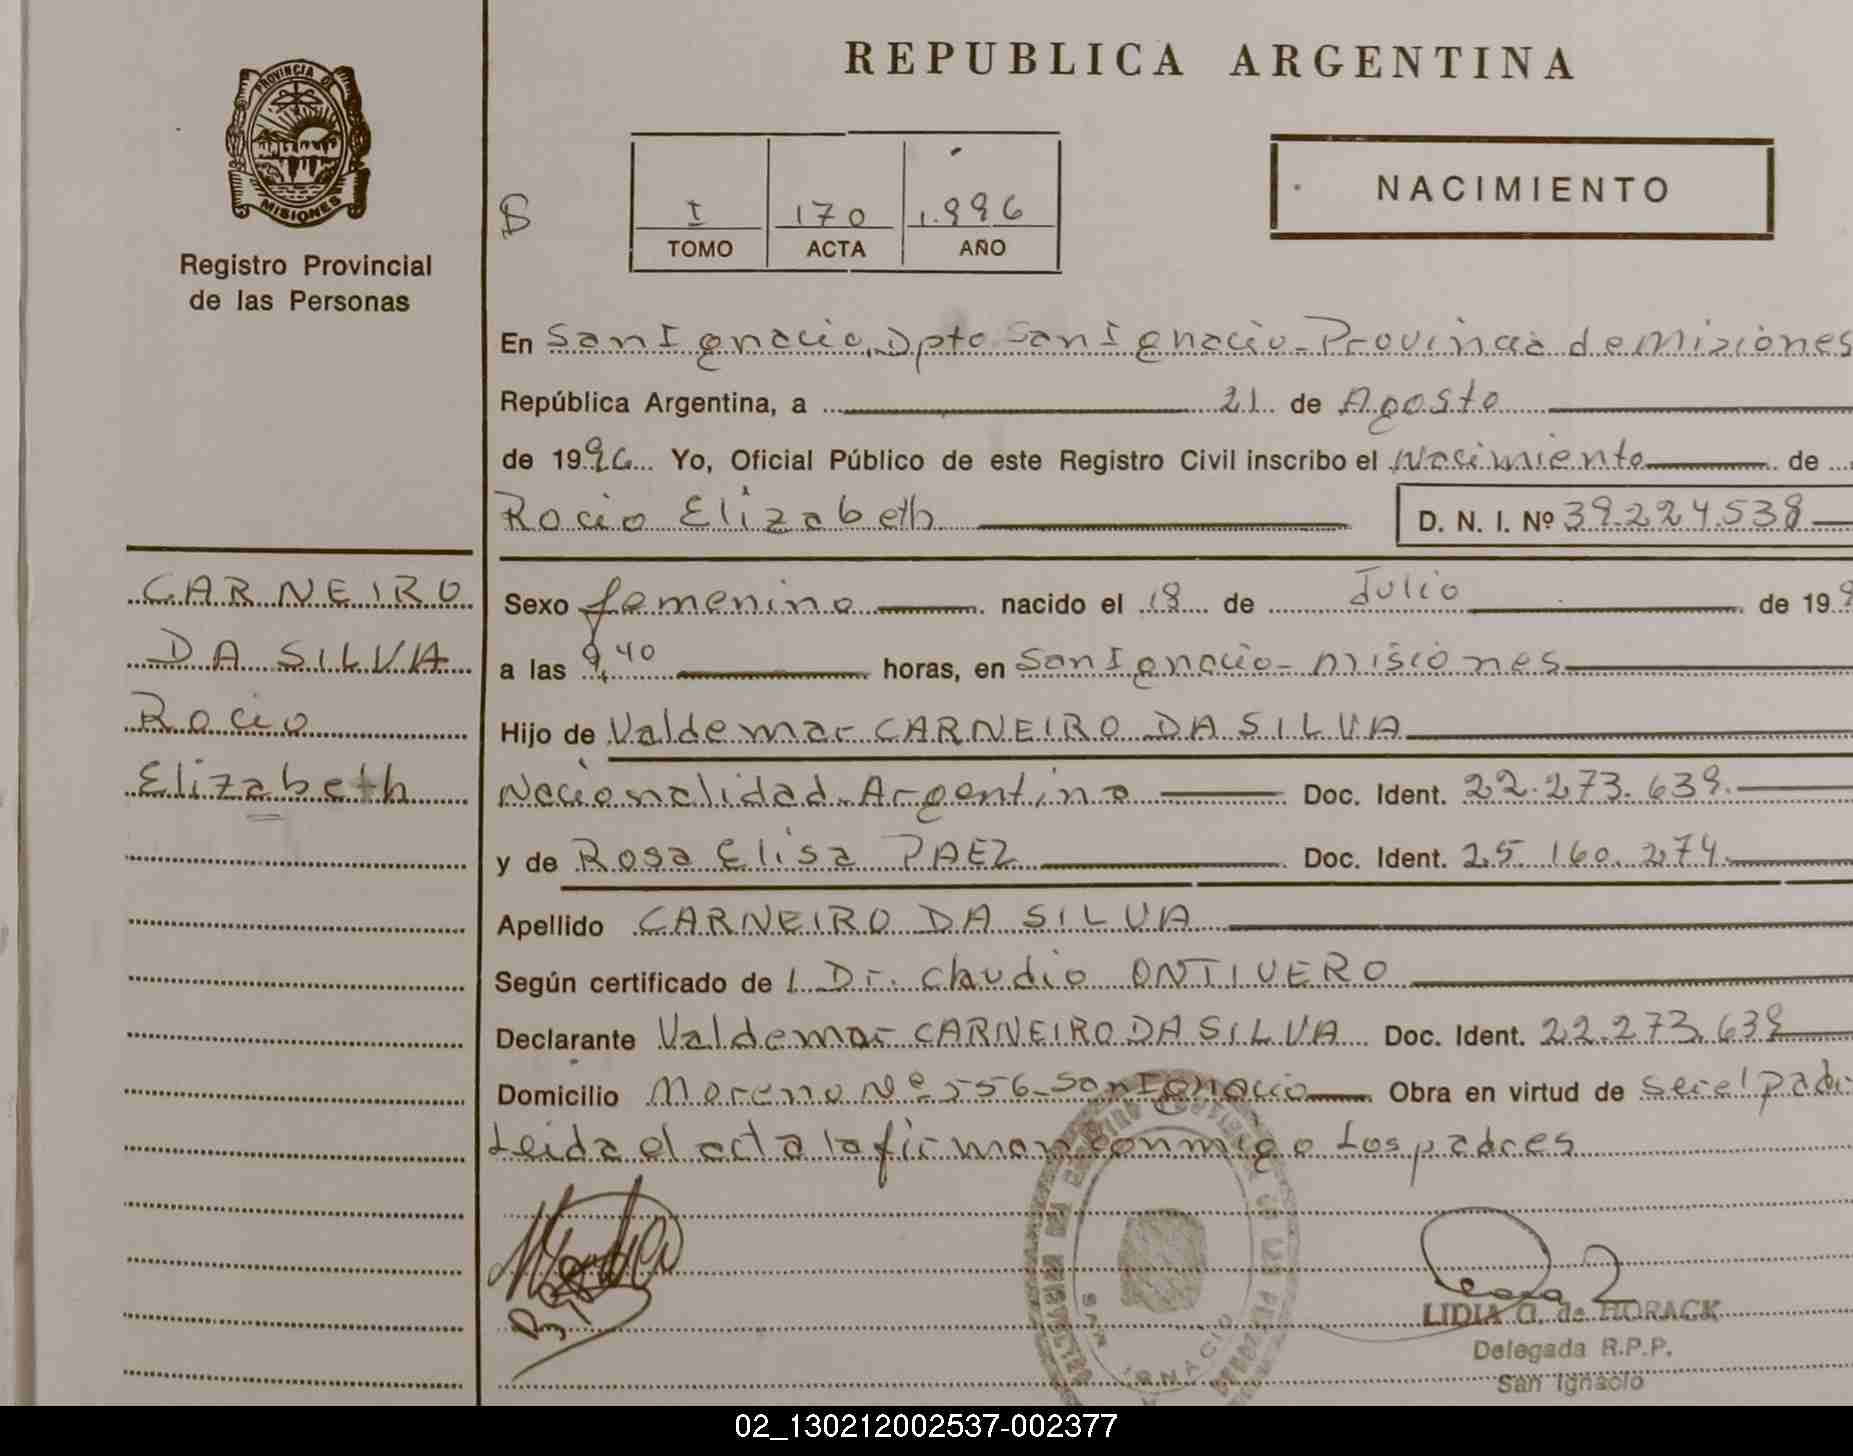 REPUBLICA ARGENTINA
PROVINCIA DE
MISIONES
Registro Provincial
de las Personas
B
I 170 1.996
TOMO ACTA AÑO
NACIMIENTO
En San Ignacio, Dpto San Ignacio - Provincia de Misiones
República Argentina, a 21 de Agosto
de 1996 Yo, Oficial Público de este Registro Civil inscribo el Nacimiento de
Rocio Elizabeth D. N. I. Nº 39.224.538
CARNEIRO
DA SILVA
Rocio
Elizabeth
Sexo femenino nacido el 18 de Julio de 199
a las 9,40 horas, en San Ignacio - Misiones
Hijo de Valdemar CARNEIRO DA SILVA
Nacionalidad Argentina Doc. Ident. 22.273.638.
y de Rosa Elisa PAEZ Doc. Ident. 25.160.274.
Apellido CARNEIRO DA SILVA
Según certificado de l Dr. Claudio ONTIVERO
Declarante Valdemar CARNEIRO DA SILVA Doc. Ident. 22.273.638
Domicilio Moreno Nº 556 - San Ignacio Obra en virtud de ser el padre
Leida el acta la firman conmigo los padres
SAN IGNACIO
LIDIA G. de HORACK
Delegada R.P.P.
San Ignacio
02_130212002537-002377